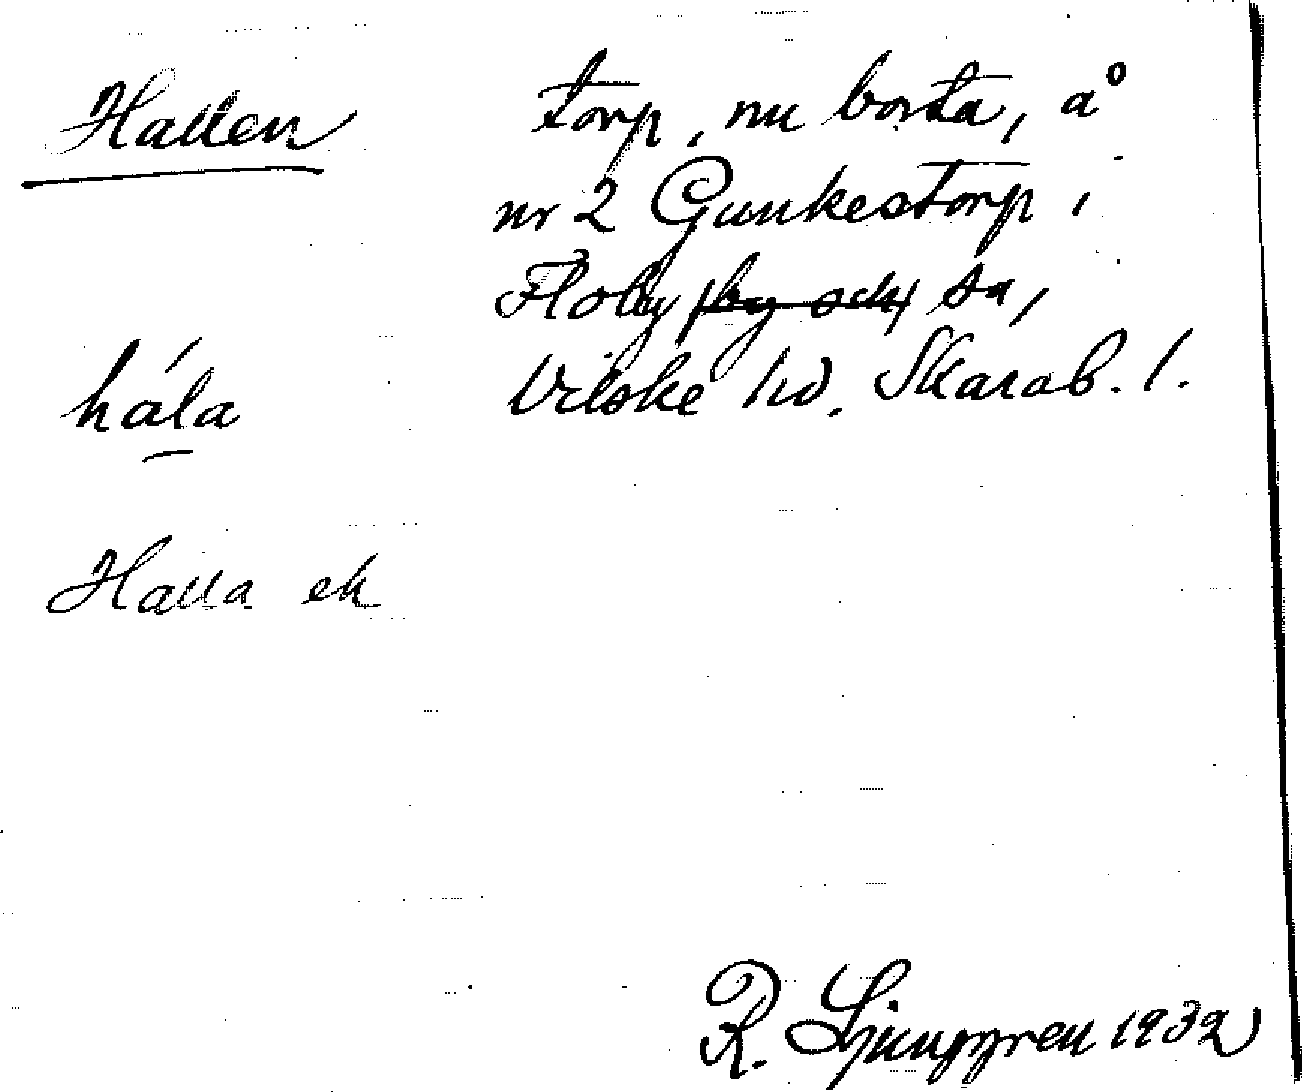 Hallen
torp, nu borta, å
nr 2 Gunkestorp i
Floby by och sn,
Vilske hd. Skarab. l.
hála
Halla ek
R. Ljunggren 1932